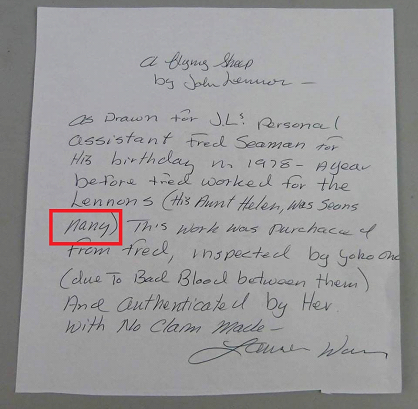 a flying Sheep
by John Lennon -
as Drawn for J.L's personal
assistant Fred Seaman for
His birthday n. 1978 - a year
before Fred worked for the
Lennons (His Aunt Helen, was Seans
nany) This work was purchaced
From Fred, inspected by Yoko Ono
(due To Bad Blood between them)
And authenticated by Her
with No Claim Made -